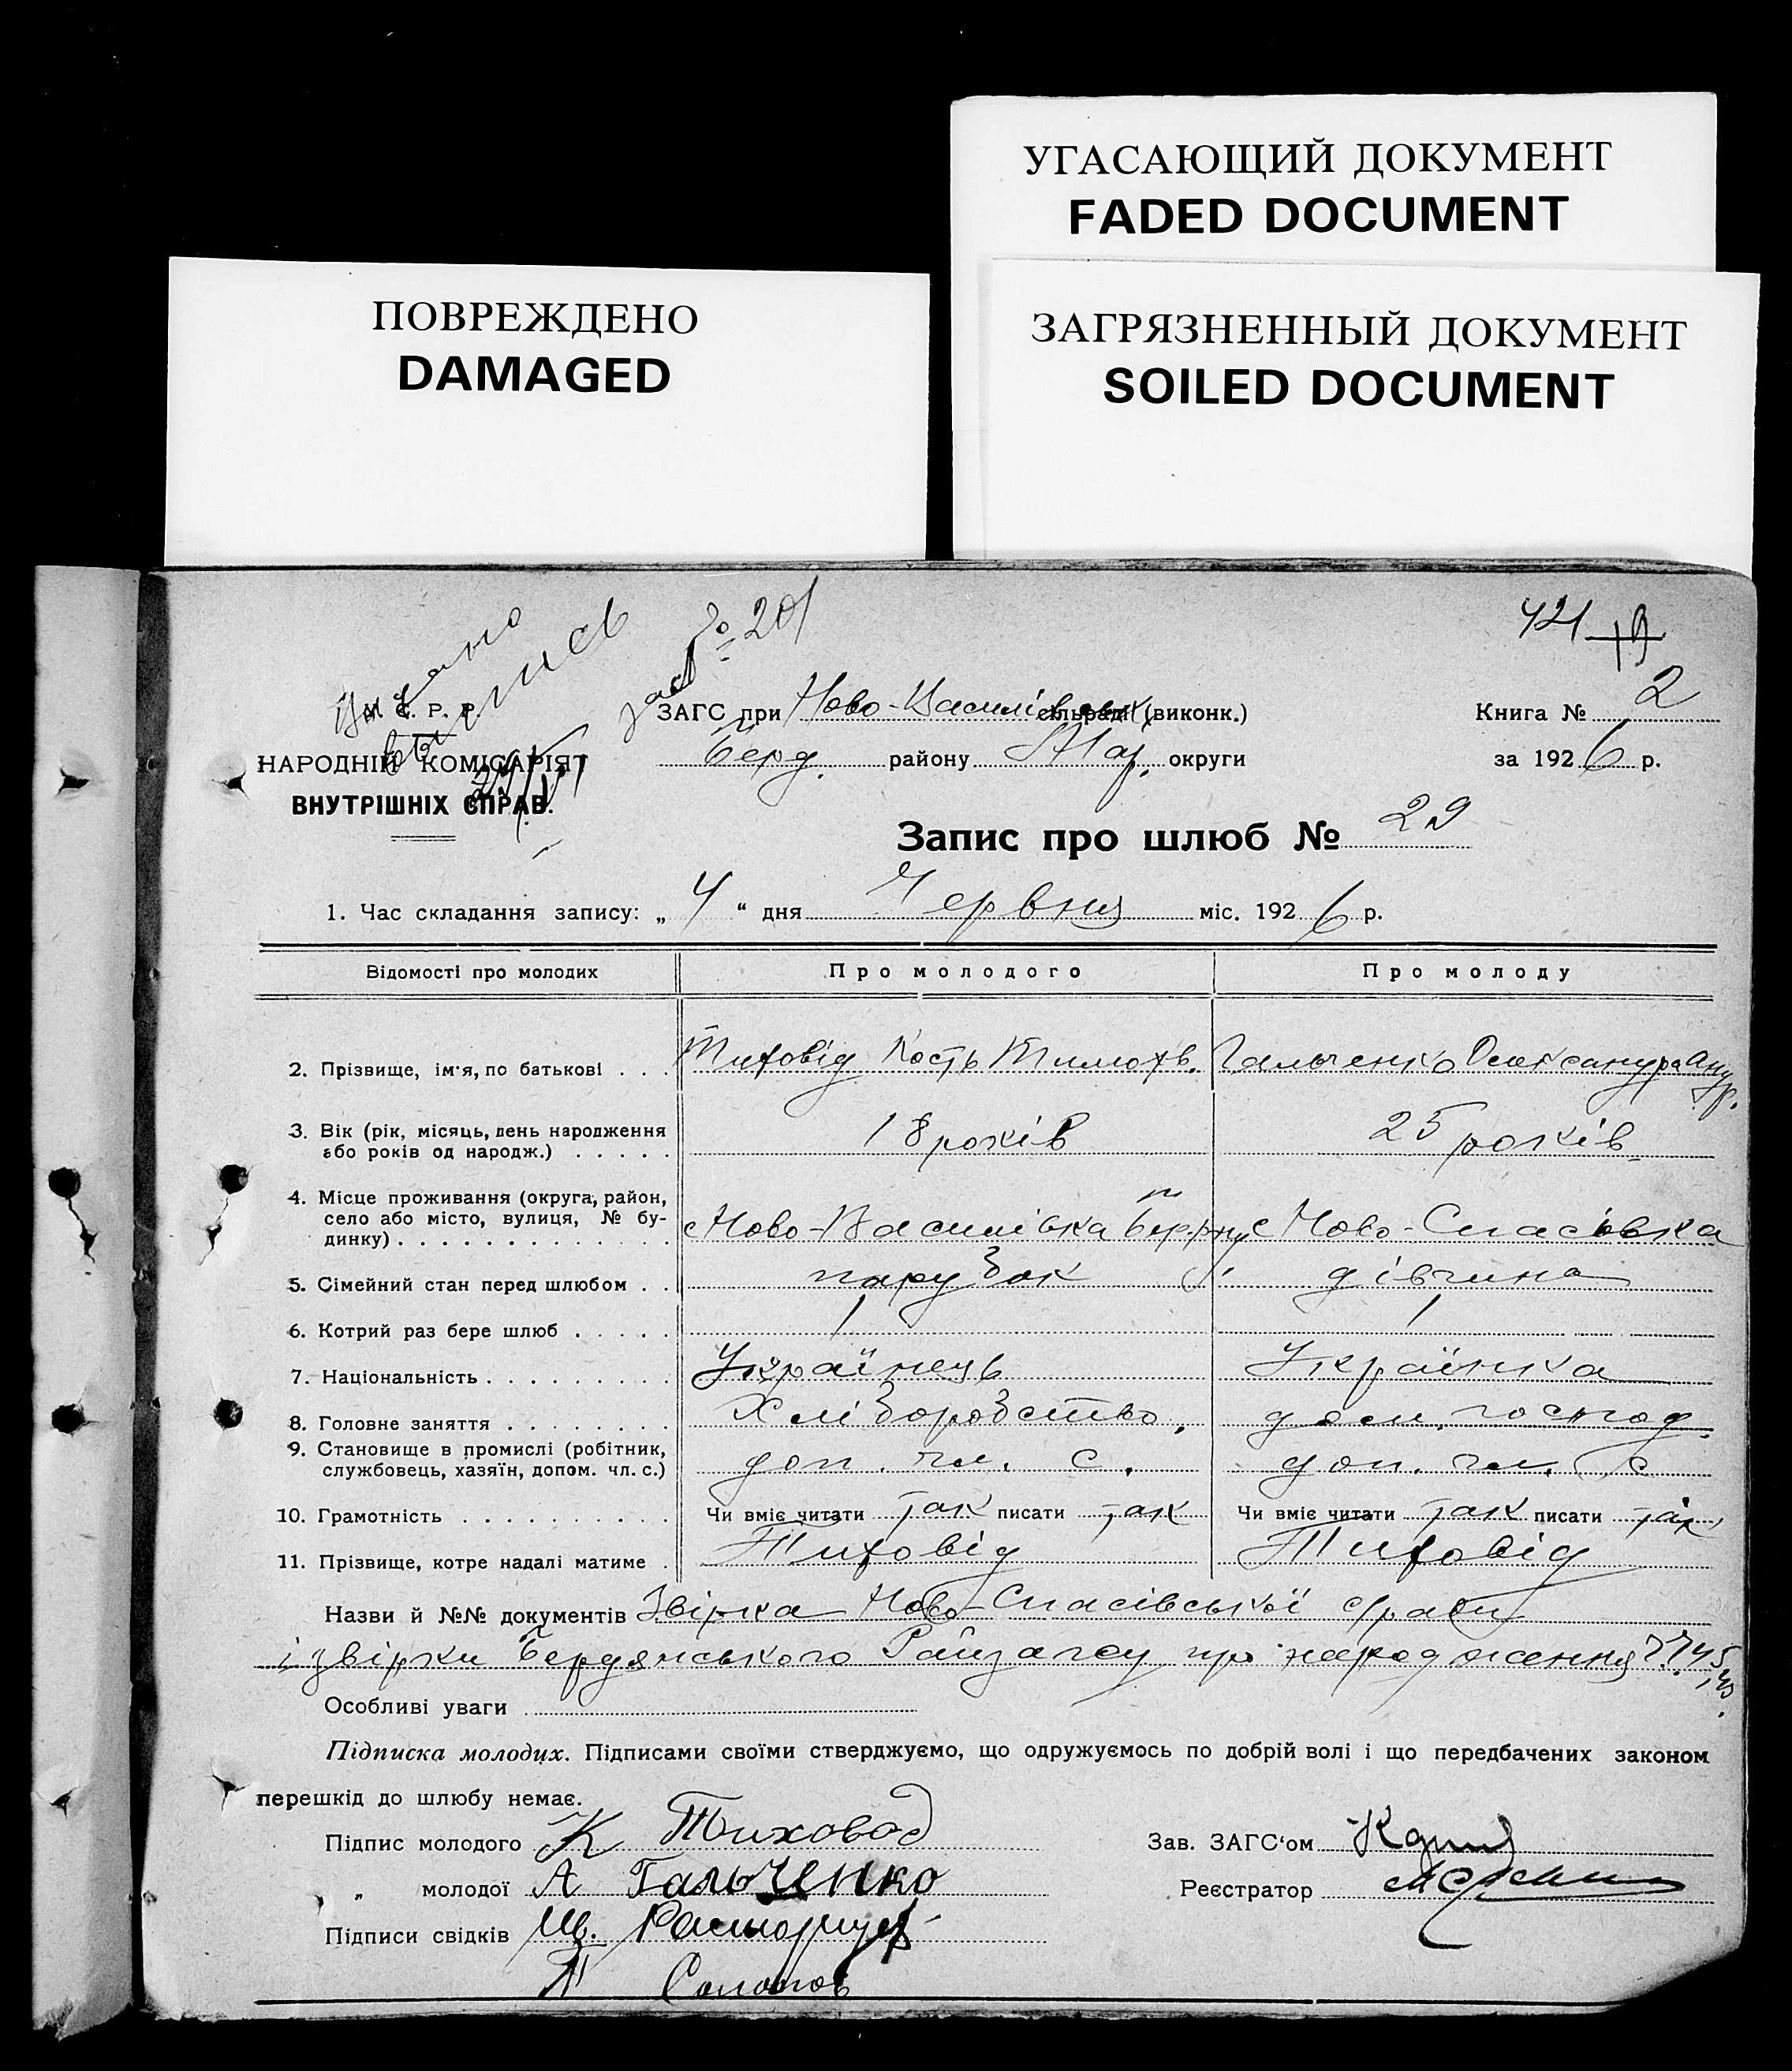 УГАСАЮЩИЙ ДОКУМЕНТ
FADED DOCUMENT
ПОВРЕЖДЕНО
DAMAGED
ЗАГРЯЗНЕННЫЙ ДОКУМЕНТ
SOILED DOCUMENT
Видано
выпись
№ 201
421 19
С. Р. Р.
ЗАГС при Ново-Василівськ. сільраді (виконк.)
Книга № 2
НАРОДНІЙ КОМІСАРІЯТ
Берд. району Мар. округи
за 1926 р.
ВНУТРІШНІХ СПРАВ.
Запис про шлюб № 29
1. Час складання запису: „ 4 “ дня Червня міс. 1926 р.
Відомості про молодих Про молодого Про молоду
2. Прізвище, ім'я, по батькові . . . Тиховід Кость Тимофв. Гальченко Олександра Андр.
3. Вік (рік, місяць, день народження
або років од народж.) . . . . . 18 років 25 років
4. Місце проживання (округа, район,
село або місто, вулиця, № бу-
динку) . . . . . . . . . . . . . с Ново-Василівка Бер. рну с Ново-Спасівка
5. Сімейний стан перед шлюбом . . парубок дівчина
6. Котрий раз бере шлюб . . . . . 1 1
7. Національність . . . . . . . . . Українець Українка
8. Головне заняття . . . . . . . . Хліборобство. дом. господ.
9. Становище в промислі (робітник,
службовець, хазяїн, допом. чл. с.) доп. чл. с. доп. чл. с
10. Грамотність . . . . . . . . . . Чи вміє читати так писати так Чи вміє читати так писати так
11. Прізвище, котре надалі матиме . Тиховід Тиховід
Назви й №№ документів Звірка Ново-Спасівської с/ради
і звірки Бердянського Райзагсу про народження
Особливі уваги
Підписка молодих. Підписами своїми стверджуємо, що одружуємось по добрій волі і що передбачених законом
перешкід до шлюбу немає.
Підпис молодого К Тиховод
Зав. ЗАГС‘ом
„ молодої А Гальченко
Реєстратор
Підписи свідків